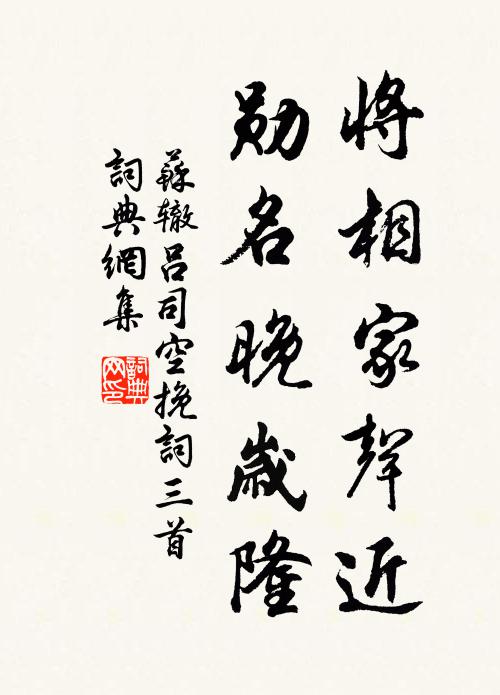 將相家聲近
勛名晚歲隆
蘇辙吕司空挽詞三首
詞典網集
詞典网印